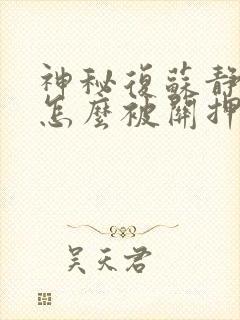 神秘復蘇靜
怎麼被關押
吴天君